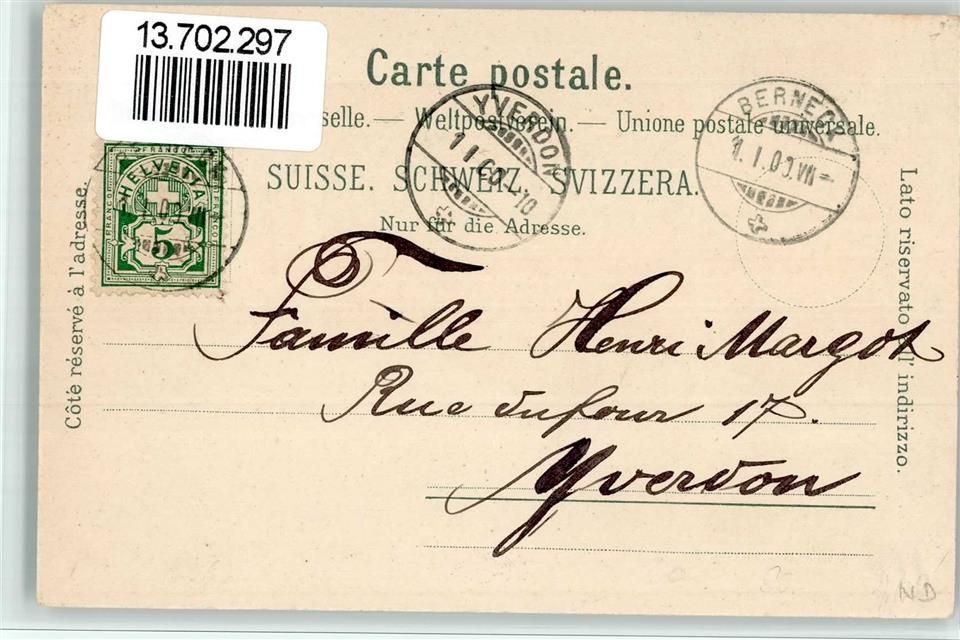 13.702.297
Carte postale.
selle. — Weltpostverein. — Unione postale universale.
SUISSE. SCHWEIZ. SVIZZERA.
Nur für die Adresse.
Côté réservé à l'adresse.
Lato riservato all' indirizzo.
YVERDON
BERNECK
FRANCO
HELVETIA
FRANCO
FRANCO
5
Famille Henri Margot
Rue dufour 17.
Yverdon
ND